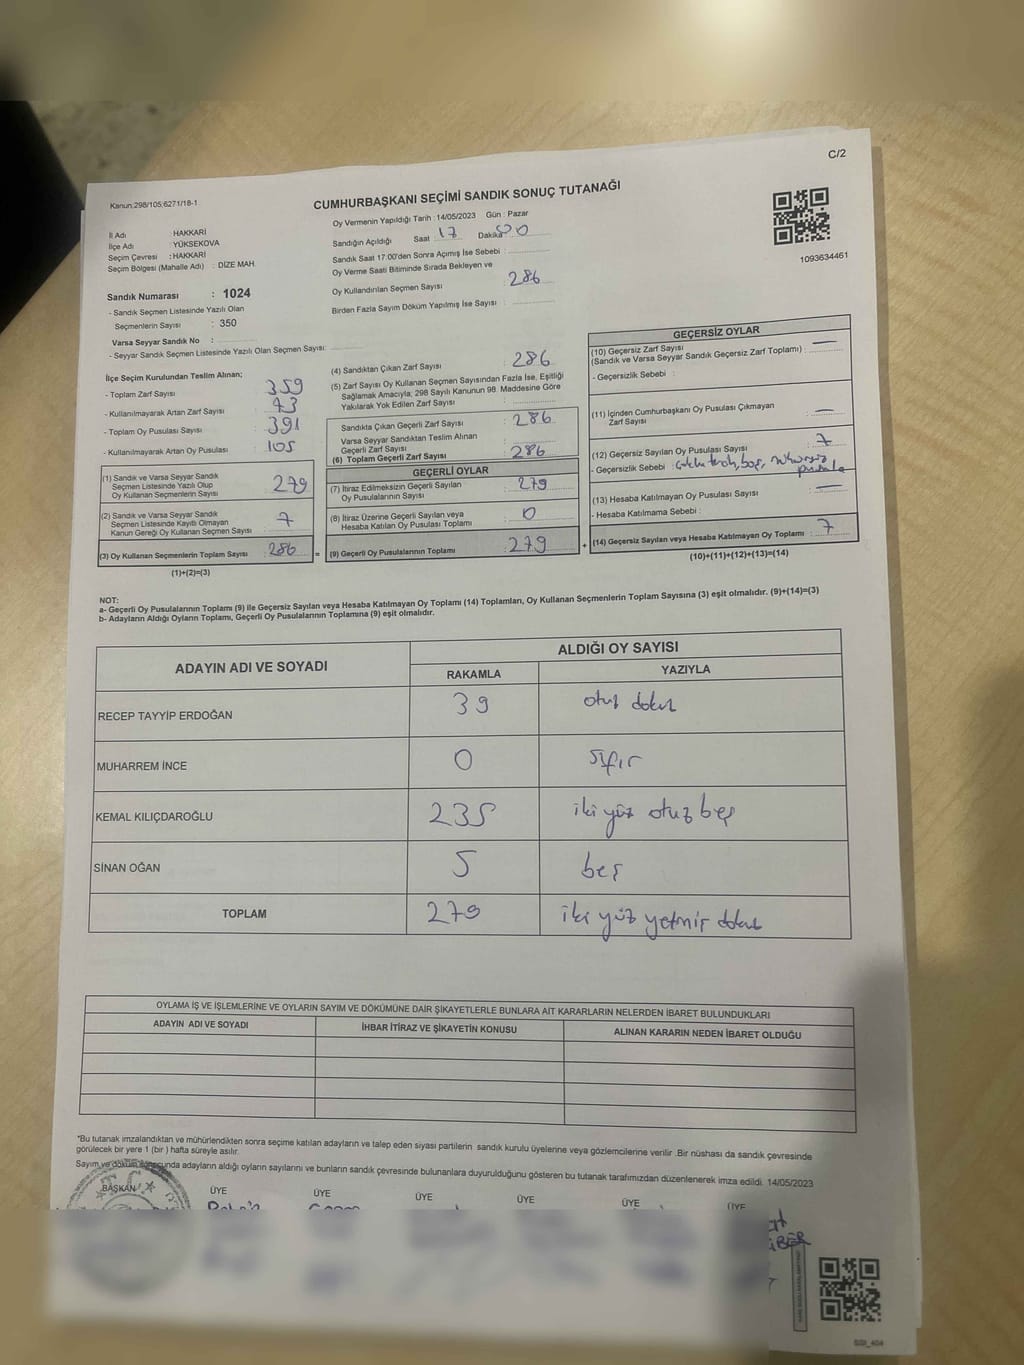 C/2
Kanun:298/105,6271/18-1
CUMHURBAŞKANI SEÇİMİ SANDIK SONUÇ TUTANAĞI
1093634461
İl Adı : HAKKARİ
İlçe Adı : YÜKSEKOVA
Seçim Çevresi : HAKKARİ
Seçim Bölgesi (Mahalle Adı) : DİZE MAH.
Sandık Numarası : 1024
- Sandık Seçmen Listesinde Yazılı Olan
Seçmenlerin Sayısı : 350
Varsa Seyyar Sandık No :
- Seyyar Sandık Seçmen Listesinde Yazılı Olan Seçmen Sayısı:
Oy Vermenin Yapıldığı Tarih : 14/05/2023 Gün : Pazar
Sandığın Açıldığı Saat 17 Dakika
Sandık Saat 17:00'den Sonra Açımış İse Sebebi :
Oy Verme Saati Bitiminde Sırada Bekleyen ve
Oy Kullandırılan Seçmen Sayısı : 286
Birden Fazla Sayım Döküm Yapılmış İse Sayısı :
İlçe Seçim Kurulundan Teslim Alınan;
- Toplam Zarf Sayısı : 359
- Kullanılmayarak Artan Zarf Sayısı : 73
- Toplam Oy Pusulası Sayısı : 391
- Kullanılmayarak Artan Oy Pusulası : 105
(1) Sandık ve Varsa Seyyar Sandık
Seçmen Listesinde Yazılı Olup
Oy Kullanan Seçmenlerin Sayısı : 279
(2) Sandık ve Varsa Seyyar Sandık
Seçmen Listesinde Kayıtlı Olmayan
Kanun Gereği Oy Kullanan Seçmen Sayısı : 7
(3) Oy Kullanan Seçmenlerin Toplam Sayısı : 286 =
(1)+(2)=(3)
(4) Sandıktan Çıkan Zarf Sayısı : 286
(5) Zarf Sayısı Oy Kullanan Seçmen Sayısından Fazla İse, Eşitliği
Sağlamak Amacıyla, 298 Sayılı Kanunun 98. Maddesine Göre
Yakılarak Yok Edilen Zarf Sayısı :
Sandıkta Çıkan Geçerli Zarf Sayısı : 286
Varsa Seyyar Sandıktan Teslim Alınan
Geçerli Zarf Sayısı :
(6) Toplam Geçerli Zarf Sayısı : 286
GEÇERLİ OYLAR
(7) İtiraz Edilmeksizin Geçerli Sayılan
Oy Pusulalarının Sayısı : 279
(8) İtiraz Üzerine Geçerli Sayılan veya
Hesaba Katılan Oy Pusulası Toplamı : 0
(9) Geçerli Oy Pusulalarının Toplamı : 279 +
GEÇERSİZ OYLAR
(10) Geçersiz Zarf Sayısı
(Sandık ve Varsa Seyyar Sandık Geçersiz Zarf Toplamı) : —
- Geçersizlik Sebebi :
(11) İçinden Cumhurbaşkanı Oy Pusulası Çıkmayan
Zarf Sayısı : —
(12) Geçersiz Sayılan Oy Pusulası Sayısı : 7
- Geçersizlik Sebebi : boş, mühürsüz
pusula
(13) Hesaba Katılmayan Oy Pusulası Sayısı : —
- Hesaba Katılmama Sebebi :
(14) Geçersiz Sayılan veya Hesaba Katılmayan Oy Toplamı : 7
(10)+(11)+(12)+(13)=(14)
NOT:
a- Geçerli Oy Pusulalarının Toplamı (9) ile Geçersiz Sayılan veya Hesaba Katılmayan Oy Toplamı (14) Toplamları, Oy Kullanan Seçmenlerin Toplam Sayısına (3) eşit olmalıdır. (9)+(14)=(3)
b- Adayların Aldığı Oyların Toplamı, Geçerli Oy Pusulalarının Toplamına (9) eşit olmalıdır.
ADAYIN ADI VE SOYADI ALDIĞI OY SAYISI
RAKAMLA YAZIYLA
RECEP TAYYİP ERDOĞAN 39 otuz dokuz
MUHARREM İNCE 0 sıfır
KEMAL KILIÇDAROĞLU 235 iki yüz otuz beş
SİNAN OĞAN 5 beş
TOPLAM 279 iki yüz yetmiş dokuz
OYLAMA İŞ VE İŞLEMLERİNE VE OYLARIN SAYIM VE DÖKÜMÜNE DAİR ŞİKAYETLERLE BUNLARA AİT KARARLARIN NELERDEN İBARET BULUNDUKLARI
ADAYIN ADI VE SOYADI İHBAR İTİRAZ VE ŞİKAYETİN KONUSU ALINAN KARARIN NEDEN İBARET OLDUĞU
*Bu tutanak imzalandıktan ve mühürlendikten sonra seçime katılan adayların ve talep eden siyasi partilerin sandık kurulu üyelerine veya gözlemcilerine verilir .Bir nüshası da sandık çevresinde
görülecek bir yere 1 (bir ) hafta süreyle asılır.
Sayım ve döküm sonucunda adayların aldığı oyların sayılarını ve bunların sandık çevresinde bulunanlara duyurulduğunu gösteren bu tutanak tarafımızdan düzenlenerek imza edildi. 14/05/2023
BAŞKAN ÜYE ÜYE ÜYE ÜYE ÜYE ÜYE